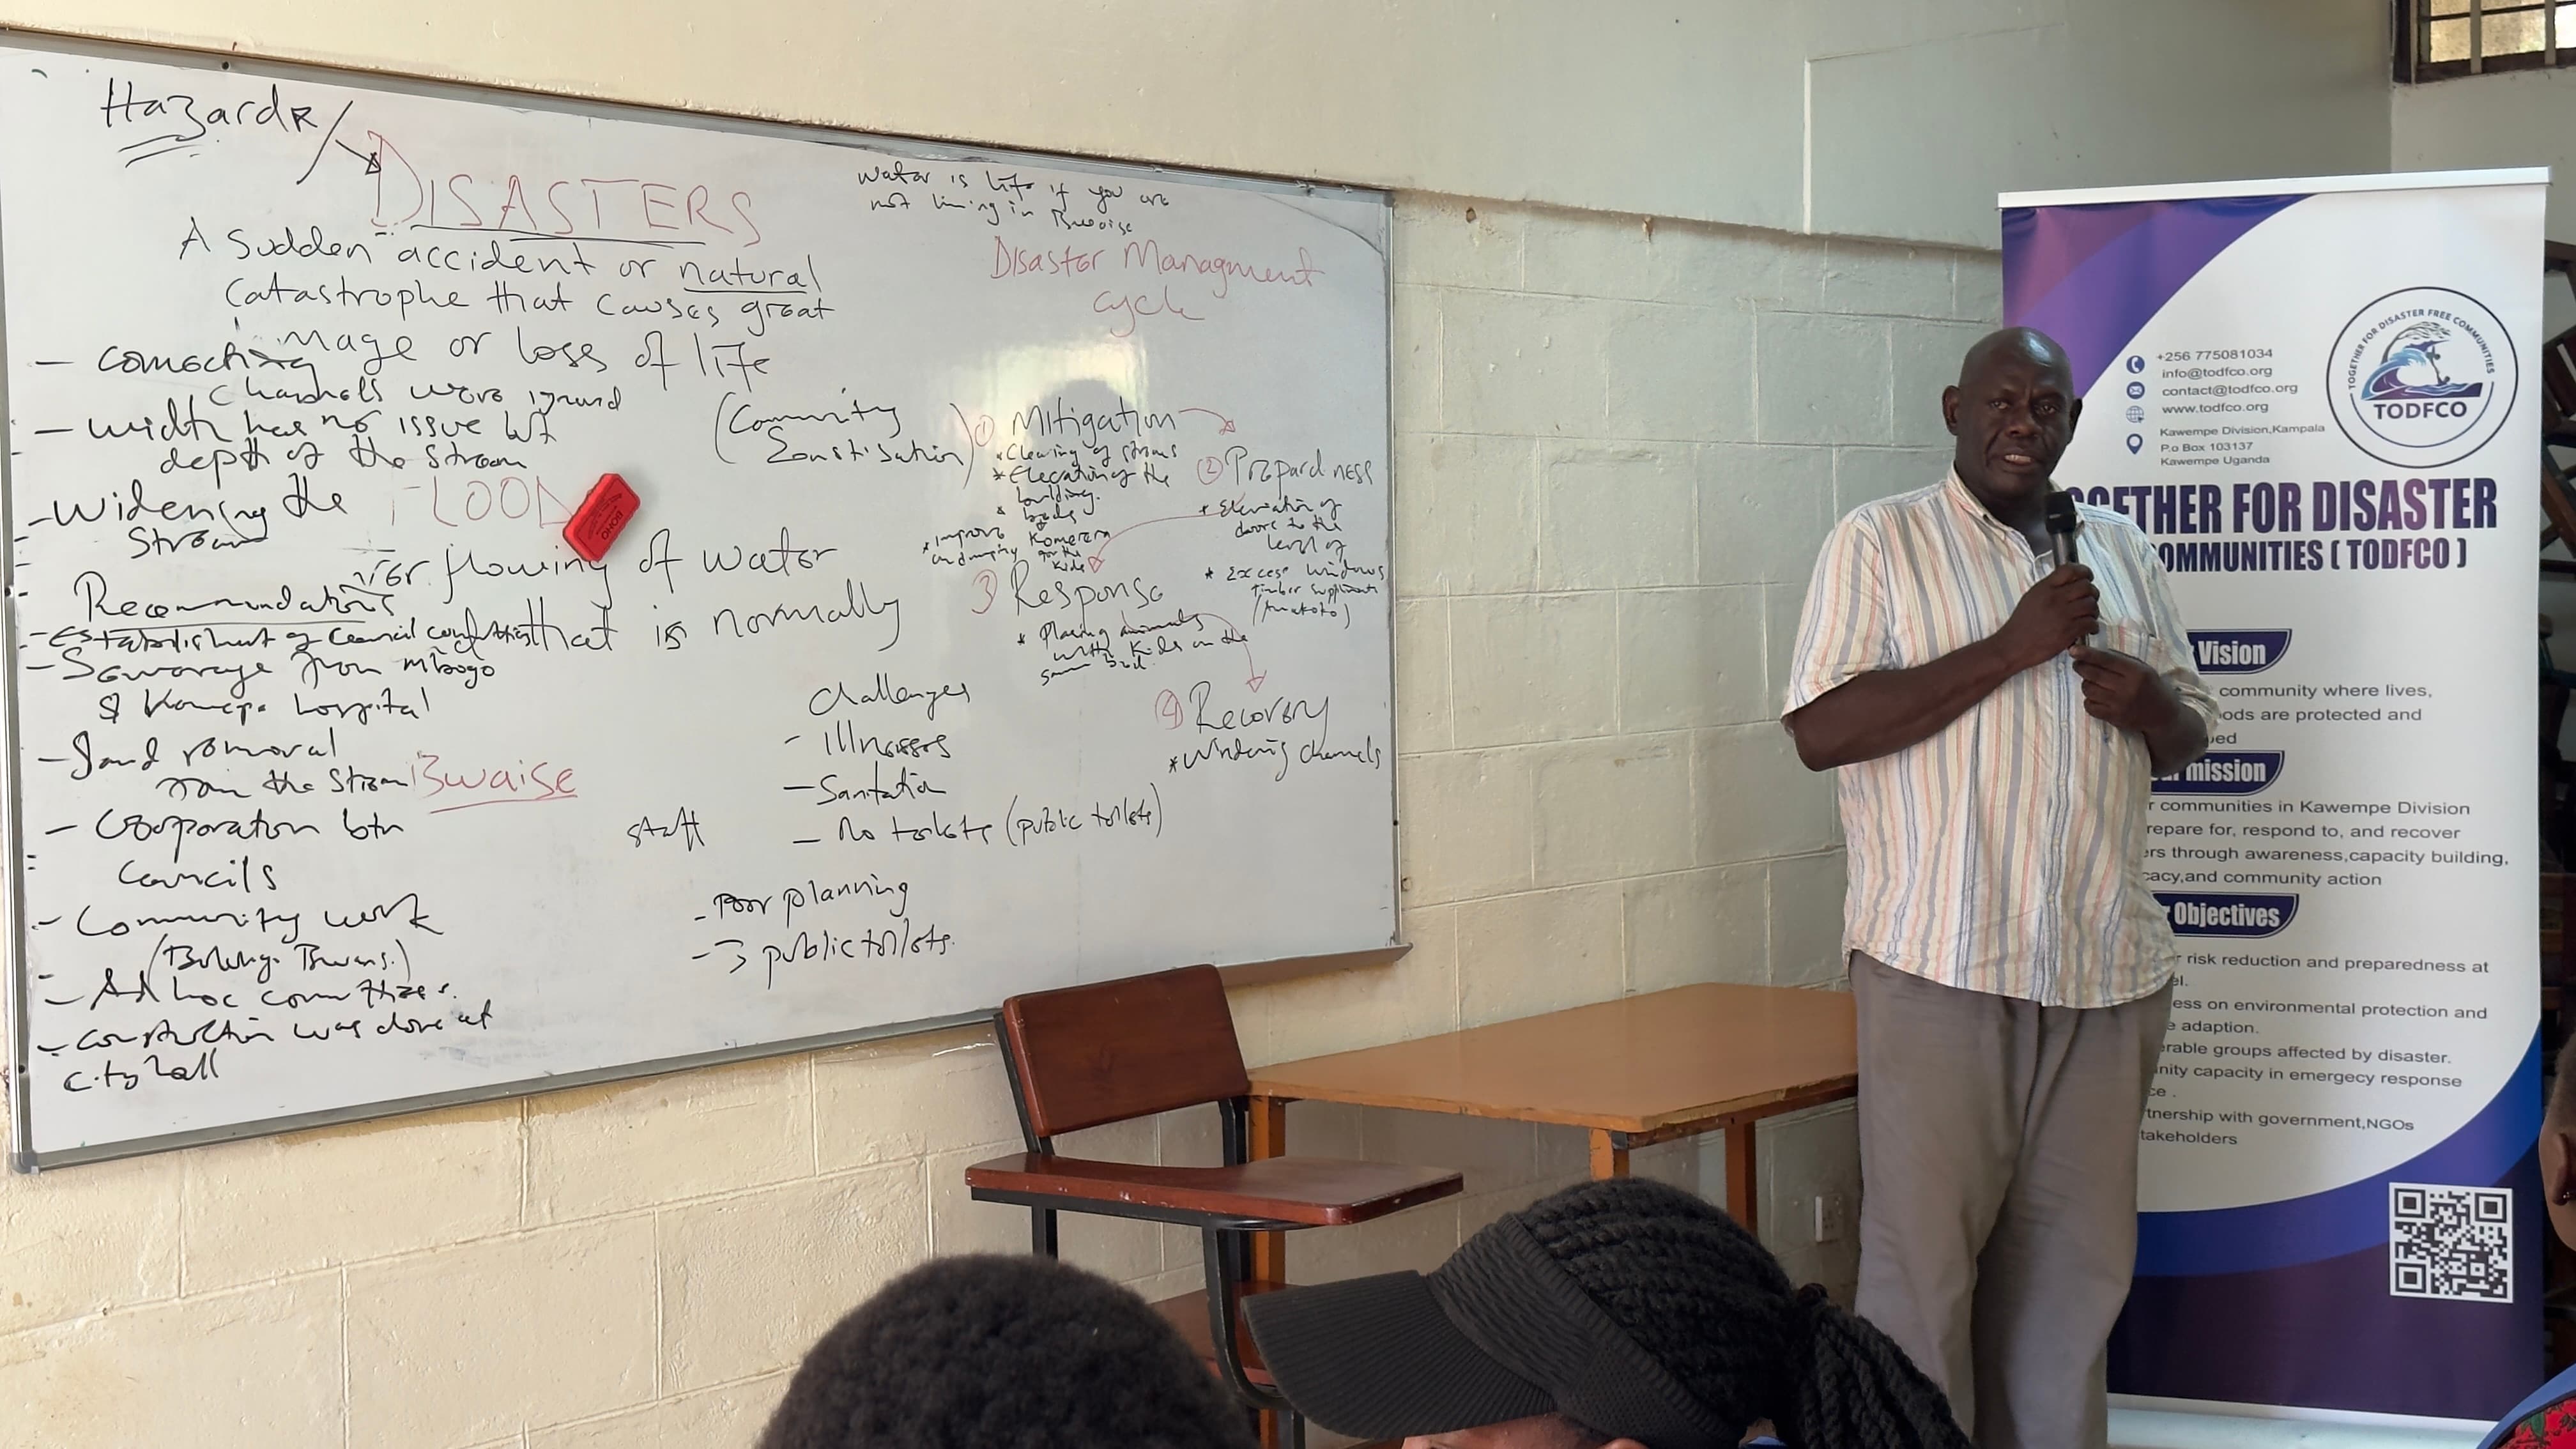 Hazards
DISASTERS
A Sudden accident or natural
Catastrophe that causes great
mage or loss of life
- 
Channels were
- width has no issue but
depth of the stream
- Widening the
Stream
FLOOD
flowing of water
that is normally
Recommendations
- Establishment of Council
- Sewarage from mbogo
& hospital
- Sand removal
from the stream
Bwaise
- Cooporation btn
Councils
- Community work
- Ad hoc committees.
- construction was done at
City hall
water is life if you are
not living in Bwaise
Disaster Managment
cycle
(Community
① Mitigation
* Clearing of streams
* Elevation of the
building.
* beds
* improve
for the
kids
② Prepardness
* Elevation of
doors to the
level of
* Excess windows
timber
3 Response
* Placing animals
with kids on the
same bed.
④ Recovery
* Widening channels
Challenges
- Illnesses
- Sanitation
- No toilets (public toilets)
staff
- Poor planning
- 3 public toilets.
DONG
+256 775081034
info@todfco.org
contact@todfco.org
www.todfco.org
Kawempe Division,Kampala
P.o Box 103137
Kawempe Uganda
TOGETHER FOR DISASTER FREE COMMUNITIES
TODFCO
GETHER FOR DISASTER
OMMUNITIES ( TODFCO )
Vision
community where lives,
ods are protected and
ued
mission
r communities in Kawempe Division
repare for, respond to, and recover
ers through awareness,capacity building,
cacy,and community action
Objectives
r risk reduction and preparedness at
el.
ess on environmental protection and
e adaption.
erable groups affected by disaster.
nity capacity in emergecy response
ce .
tnership with government,NGOs
takeholders